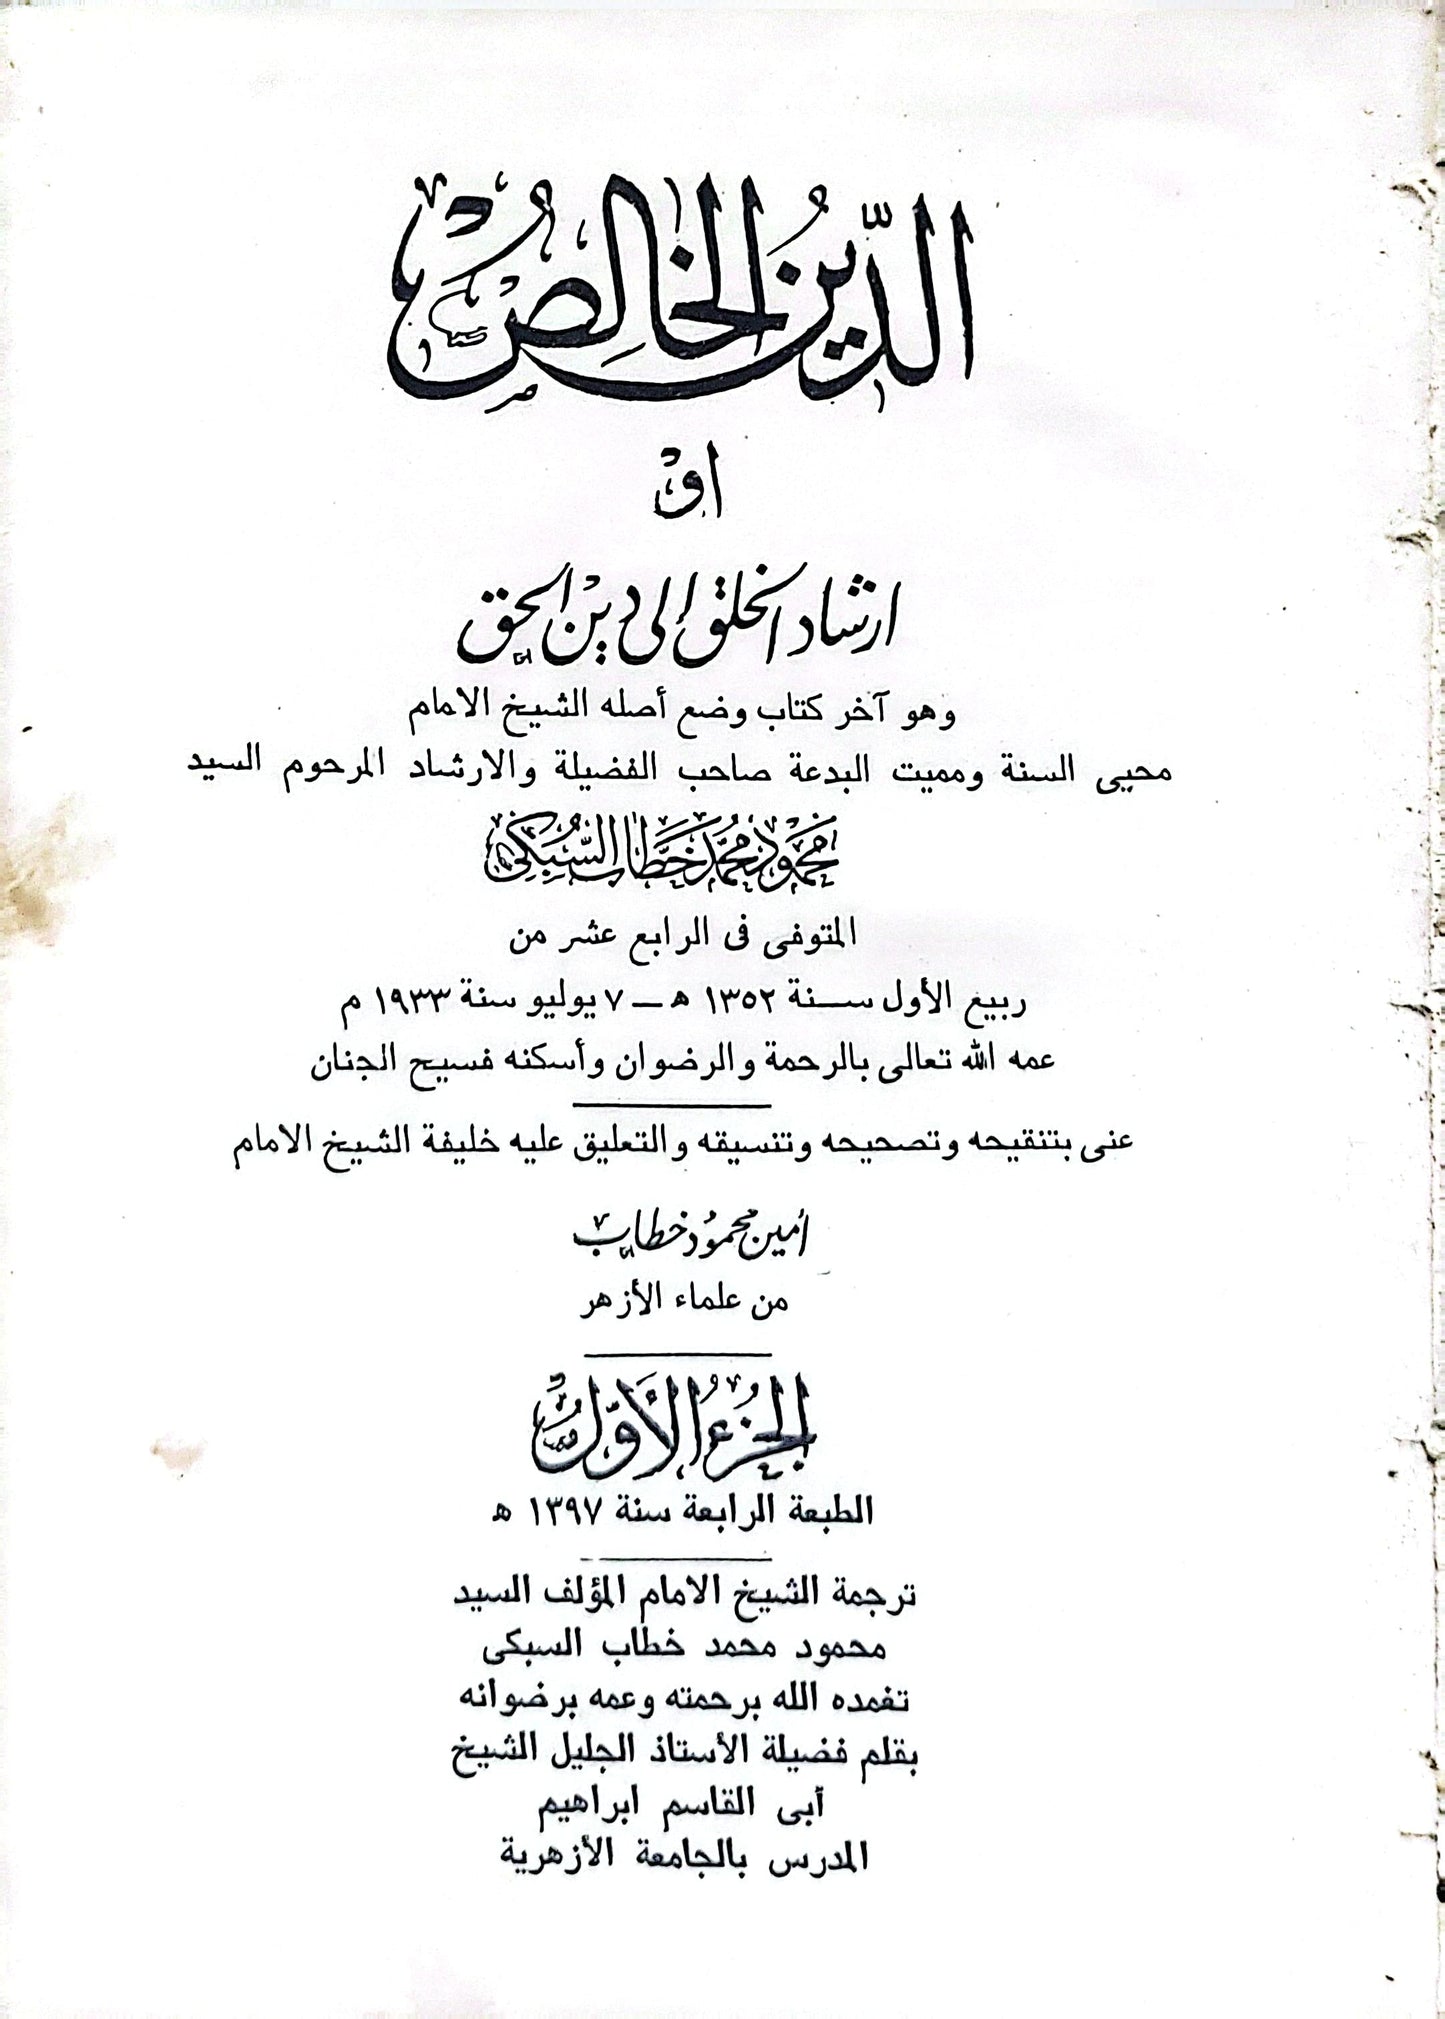 الدِّينُ الخَالِصُ
أوْ
ارشاد الخلق إلى دين الحق
وهو آخر كتاب وضع أصله الشيخ الامام
محيى السنة ومميت البدعة صاحب الفضيلة والارشاد المرحوم السيد
محمود محمد خطاب السبكى
المتوفى فى الرابع عشر من
ربيع الأول سنة ١٣٥٢ هـ — ٧ يوليو سنة ١٩٣٣ م
عمه الله تعالى بالرحمة والرضوان وأسكنه فسيح الجنان
عنى بتنقيحه وتصحيحه وتنسيقه والتعليق عليه خليفة الشيخ الامام
أمين محمود خطاب
من علماء الأزهر
الجزء الأول
الطبعة الرابعة سنة ١٣٩٧ هـ
ترجمة الشيخ الامام المؤلف السيد
محمود محمد خطاب السبكى
تغمده الله برحمته وعمه برضوانه
بقلم فضيلة الأستاذ الجليل الشيخ
أبى القاسم ابراهيم
المدرس بالجامعة الأزهرية